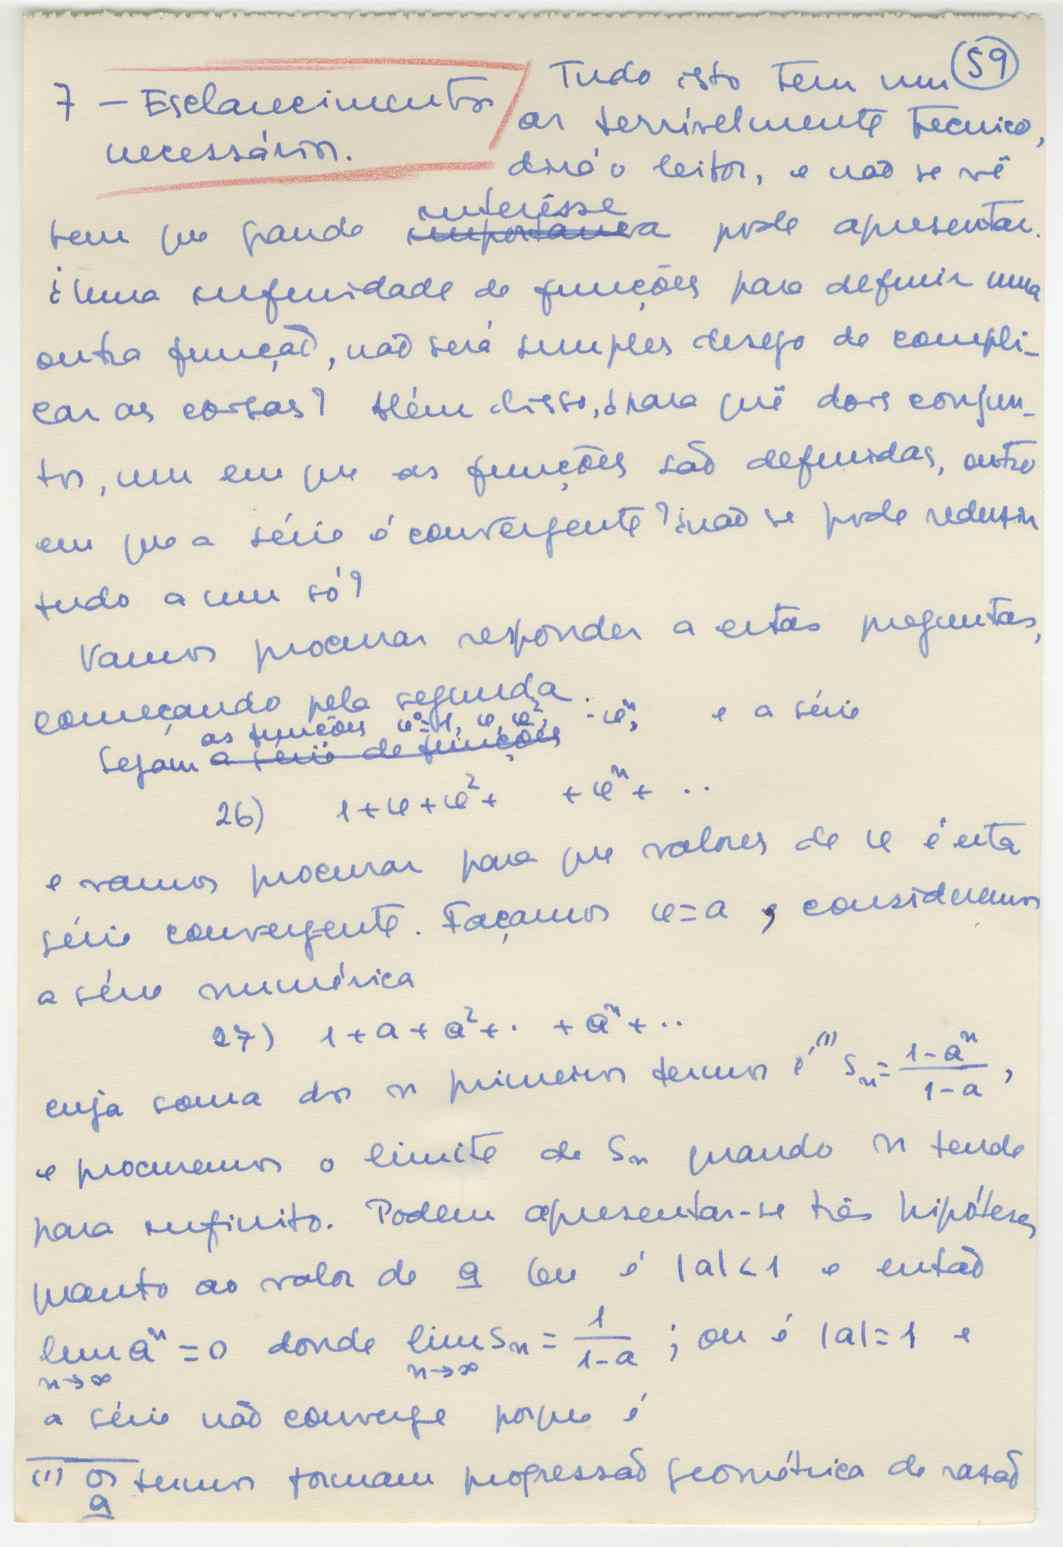 59
7 – Esclarecimentos
necessários.
Tudo isto tem um
ar terrivelmente técnico,
dirá o leitor, e não se vê
bem que grande interêsse importancia pode apresentar.
¿Uma infinidade de funções para definir uma
outra função, não será simples desejo de compli-
car as coisas? Além disso, ¿para quê dois conjun-
tos, um em que as funções são definidas, outro
em que a série é convergente? ¿não se pode reduzir
tudo a um só?
Vamos procurar responder a estas preguntas,
começando pela segunda.
Sejam as funções φ⁰=1, φ, φ², ··φⁿ, e a série
a série de funções
26) 1+φ+φ²+ +φⁿ+ ··
e vamos procurar para que valores de φ é esta
série convergente. Façamos φ=a, consideremos
a série numérica
27) 1+a+a²+· +aⁿ+··
cuja soma dos n primeiros termos é⁽¹⁾ Sₙ= (1-aⁿ)/(1-a),
e procuremos o limite de Sₙ quando n tende
para infinito. Podem apresentar-se três hipóteses
quanto ao valor de a (ou é |a|<1 e então
lim aⁿ =0 donde lim Sₙ = 1/(1-a) ; ou é |a|=1 e
n→∞ n→∞
a série não converge porque é
(1) os termos formam progressão geométrica de razão
a